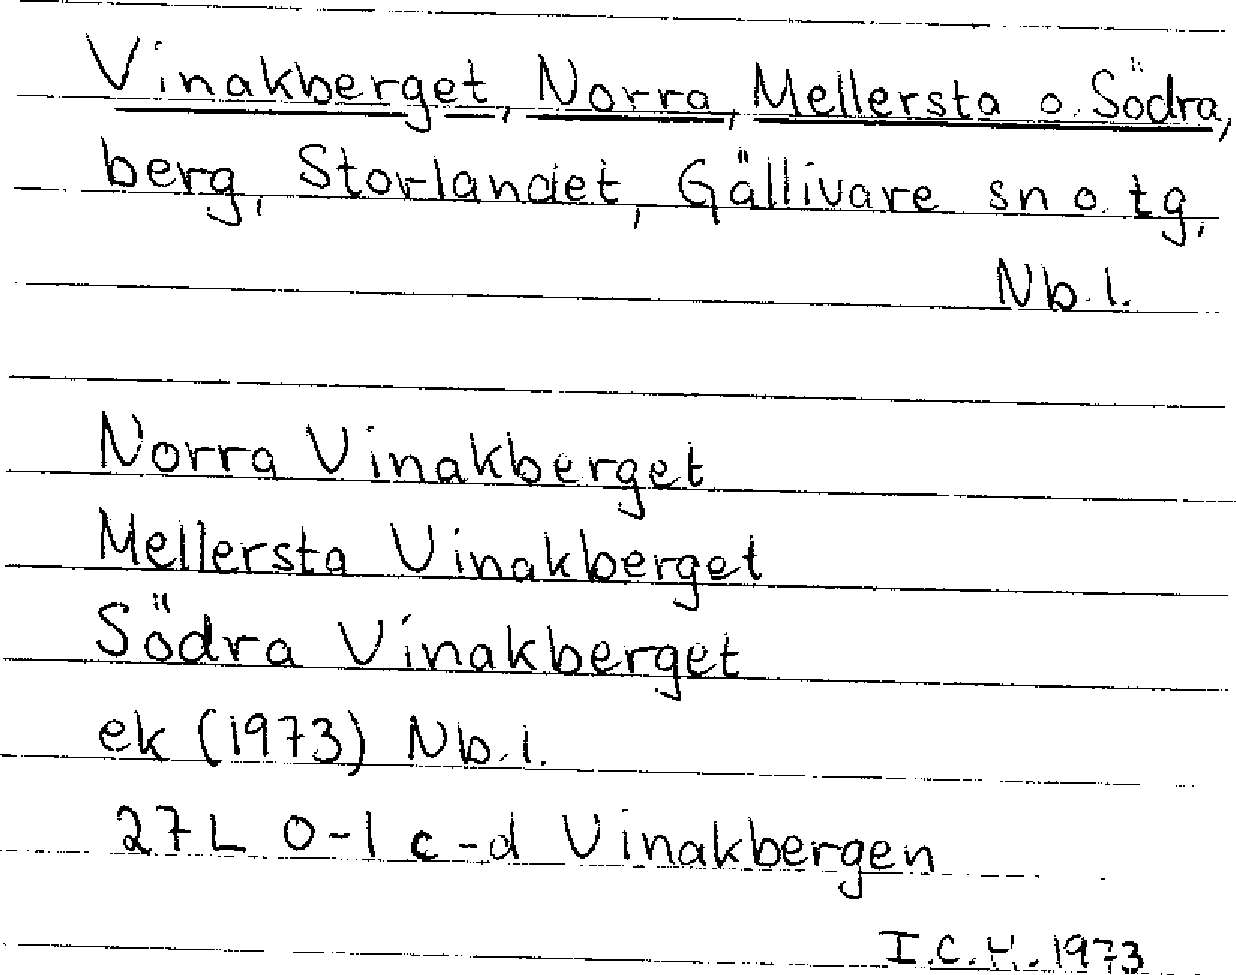 Vinakberget, Norra, Mellersta o. Södra,
berg, Storlandet, Gällivare sn o. tg,
Nb. l.
Norra Vinakberget
Mellersta Vinakberget
Södra Vinakberget
ek (1973) Nb. l.
27L 0-1 c-d Vinakbergen
I.C.H. 1973